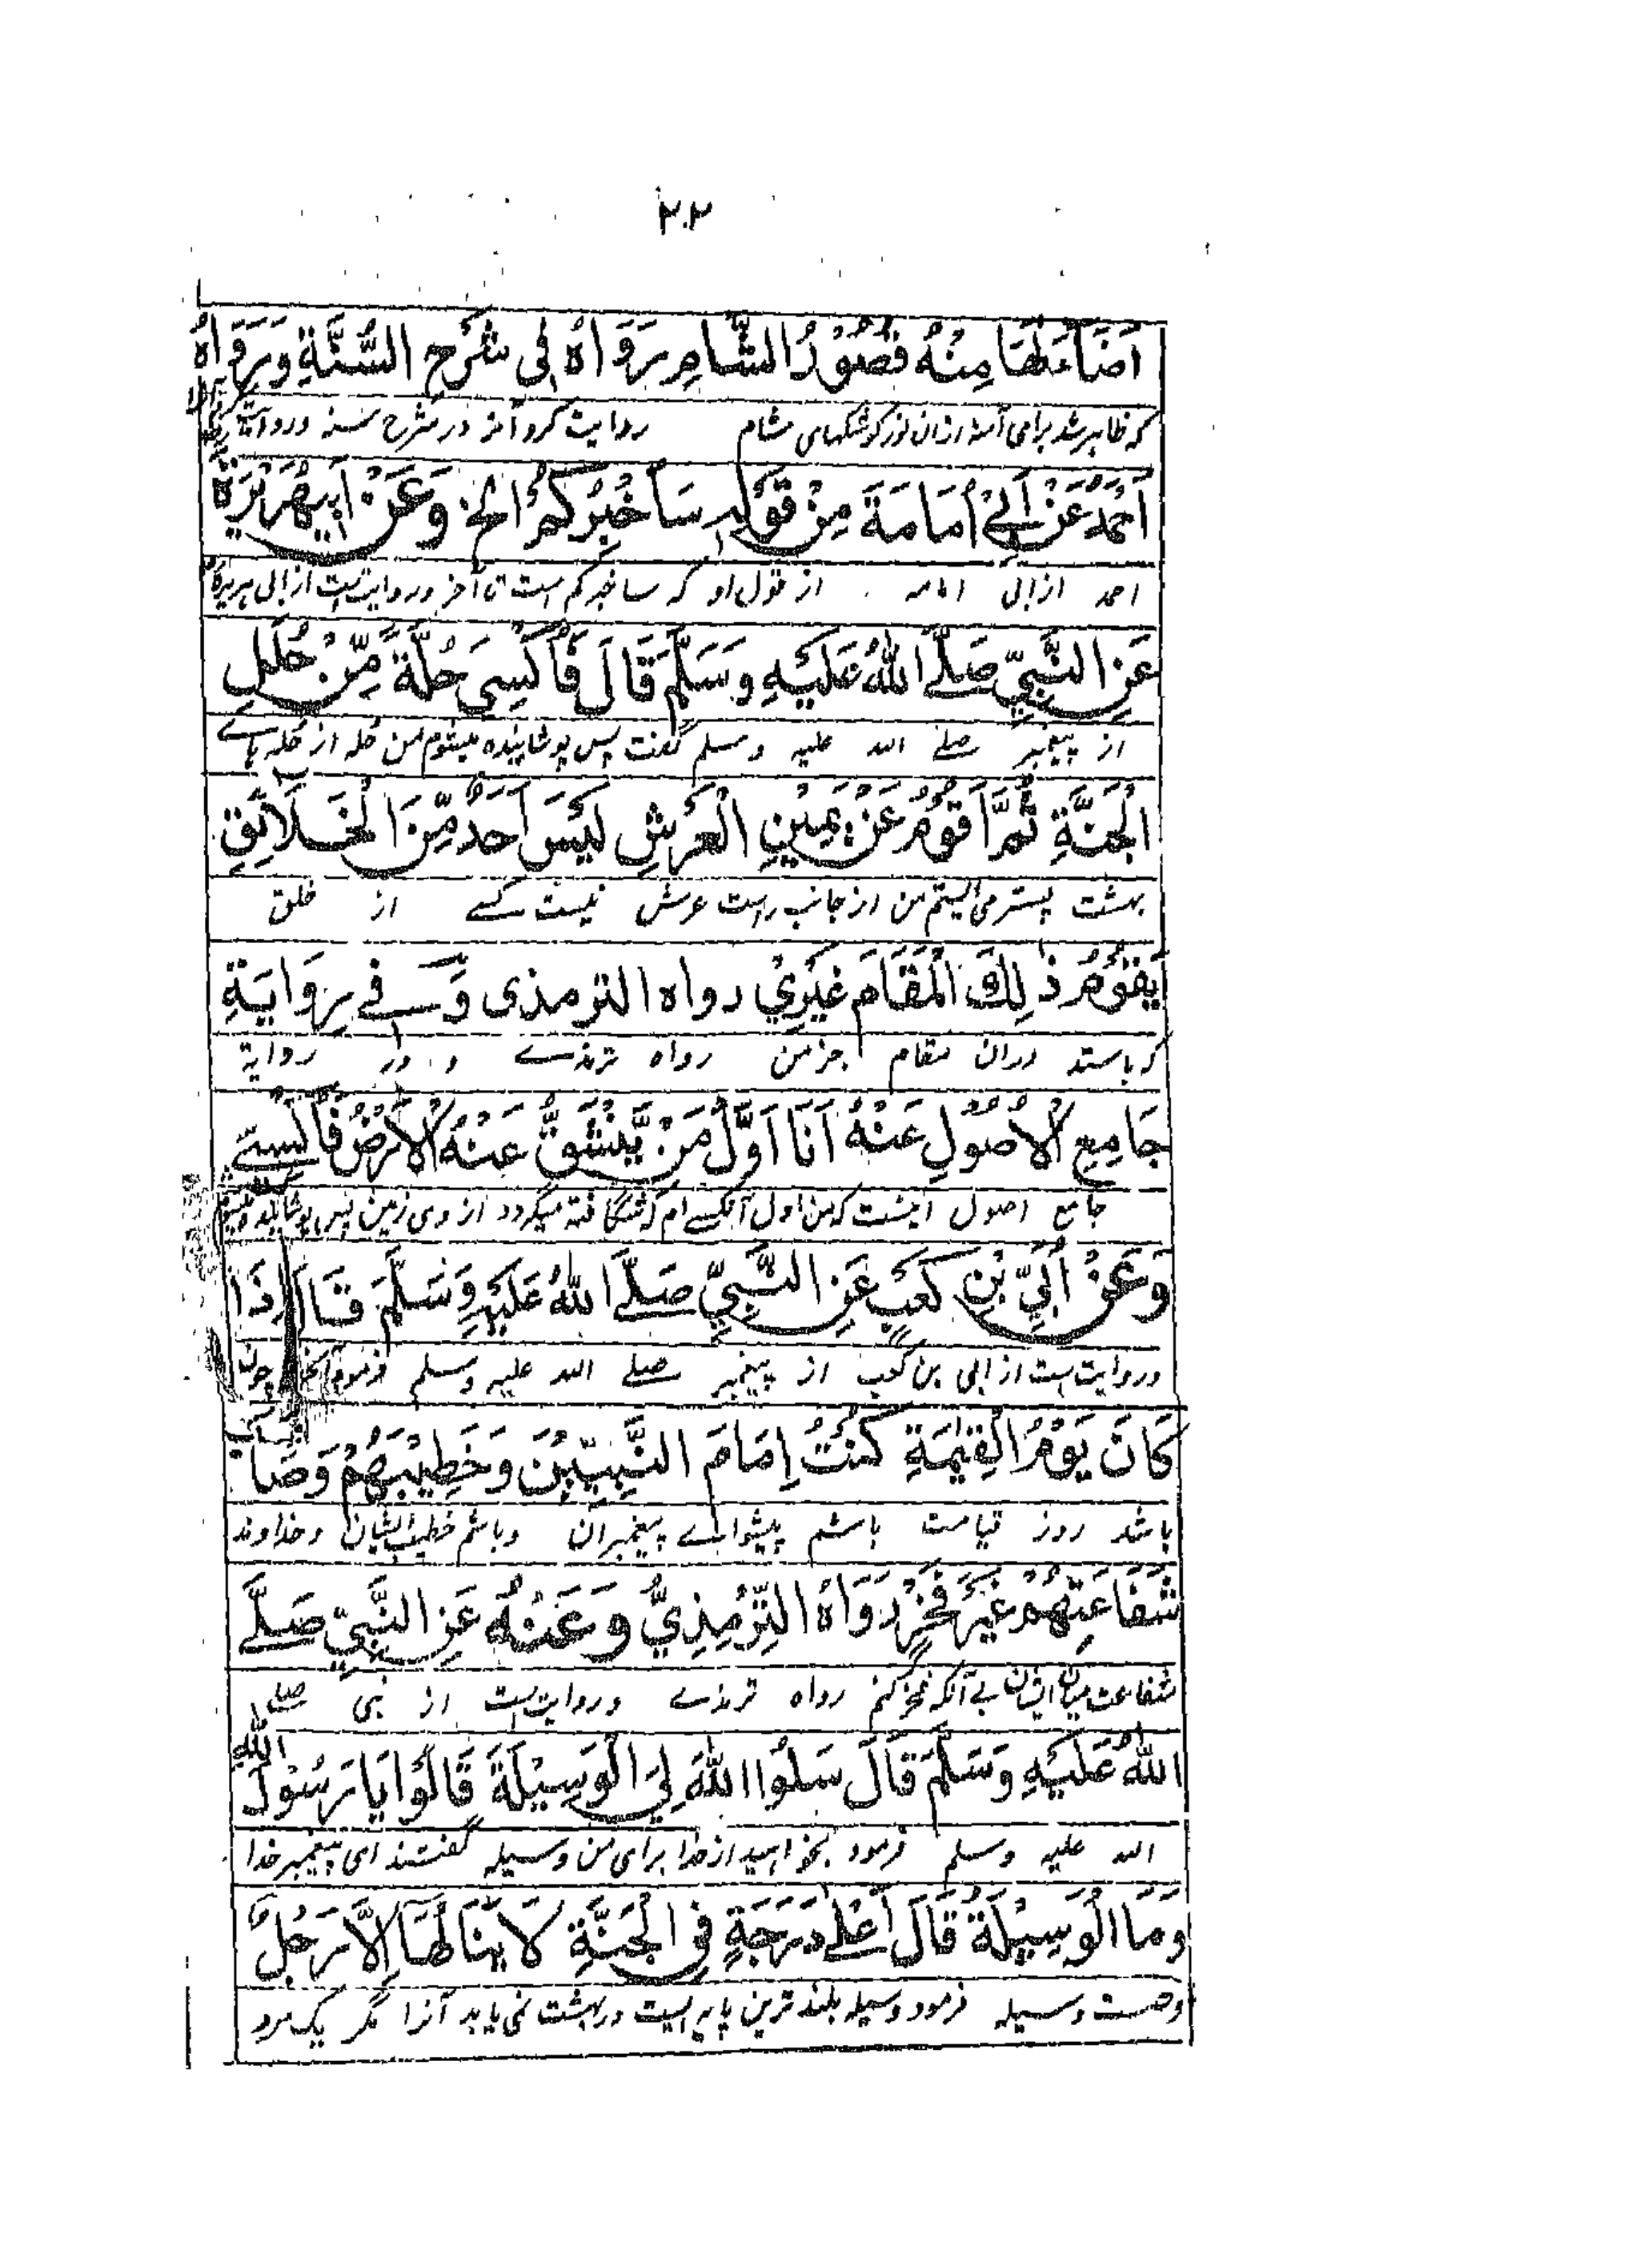 ٢٢
اَضَاءَ لَهَا مِنْهُ قُصُوْرُ الشَّامِ رَوَاهُ فِي شَرْحِ السُّنَّةِ وَرَوَاهُ
که ظاهر شد برای آمنه ازان نور کوشکهای شام روایت کرد آنرا در شرح سنه و
اَحْمَدُ عَنْ اَبِيْ اُمَامَةَ مِنْ قَوْلِهٖ سَاُخْبِرُكُمْ الخ وَعَنْ اَبِيْهُرَيْرَةَ
احمد از ابی امامه از قول او که ساخبرکم است تا آخر و روایت است از ابی هریره
عَنِ النَّبِيِّ صَلَّے اللّٰهُ عَلَيْهِ وَسَلَّمَ قَالَ فَاُكْسٰى حُلَّةً مِّنْ حُلَلِ
از پیغمبر صلے الله علیه وسلم گفت پس پوشانیده میشوم من حله از حله ہاے
الْجَنَّةِ ثُمَّ اَقُوْمُ عَنْ يَّمِيْنِ الْعَرْشِ لَيْسَ اَحَدٌ مِّنَ الْخَلَائِقِ
بهشت پستر می ایستم من از جانب راست عرش نیست کسے از خلق
يَقُوْمُ ذٰلِكَ الْمَقَامَ غَيْرِيْ رواه الترمذى وَ فے رِوَايَةِ
که باستد دران مقام جز من رواه ترمذے و در روایة
جَامِعِ الْاُصُوْلِ عَنْهُ اَنَا اَوَّلُ مَنْ يَّنْشَقُّ عَنْهُ الْاَرْضُ فَاُكْسٰے
جامع اصول اینست که من اول آنکسے ام که شگافته میگردد از وی زمین پس پوشانیده میشوم
وَعَنْ اُبَيِّ بْنِ كَعْبٍ عَنِ النَّبِيِّ صَلَّے اللّٰهُ عَلَيْهِ وَسَلَّمَ قَالَ اِذَا
و روایت است از ابی بن کعب از پیغمبر صلے الله علیه وسلم فرمود چون
كَانَ يَوْمُ الْقِيٰمَةِ كُنْتُ اِمَامَ النَّبِيِّيْنَ وَخَطِيْبَهُمْ وَصَاحِبَ
باشد روز قیامت باشم پیشواے پیغمبران و باشم خطیب ایشان و خداوند
شَفَاعَتِهِمْ غَيْرَ فَخْرٍ رَوَاهُ التِّرْمِذِيُّ وَعَنْهُ عَنِ النَّبِيِّ صَلَّے
شفاعت میان ایشان بے آنکه فخر کنم رواه ترمذے و روایت است از نبی صلے
اللّٰهُ عَلَيْهِ وَسَلَّمَ قَالَ سَلُوا اللّٰهَ لِيَ الْوَسِيْلَةَ قَالُوْا يَا رَسُوْلَ اللّٰهِ
الله علیه وسلم فرمود بخواهید از خدا برای من وسیله گفتند ای پیغمبر خدا
وَمَا الْوَسِيْلَةُ قَالَ اَعْلٰے دَرَجَةٍ فِي الْجَنَّةِ لَا يَنَالُهَا اِلَّا رَجُلٌ
وچست وسیله فرمود وسیله بلند ترین پایه ایست در بهشت نمی یابد آنرا مگر یک مرد